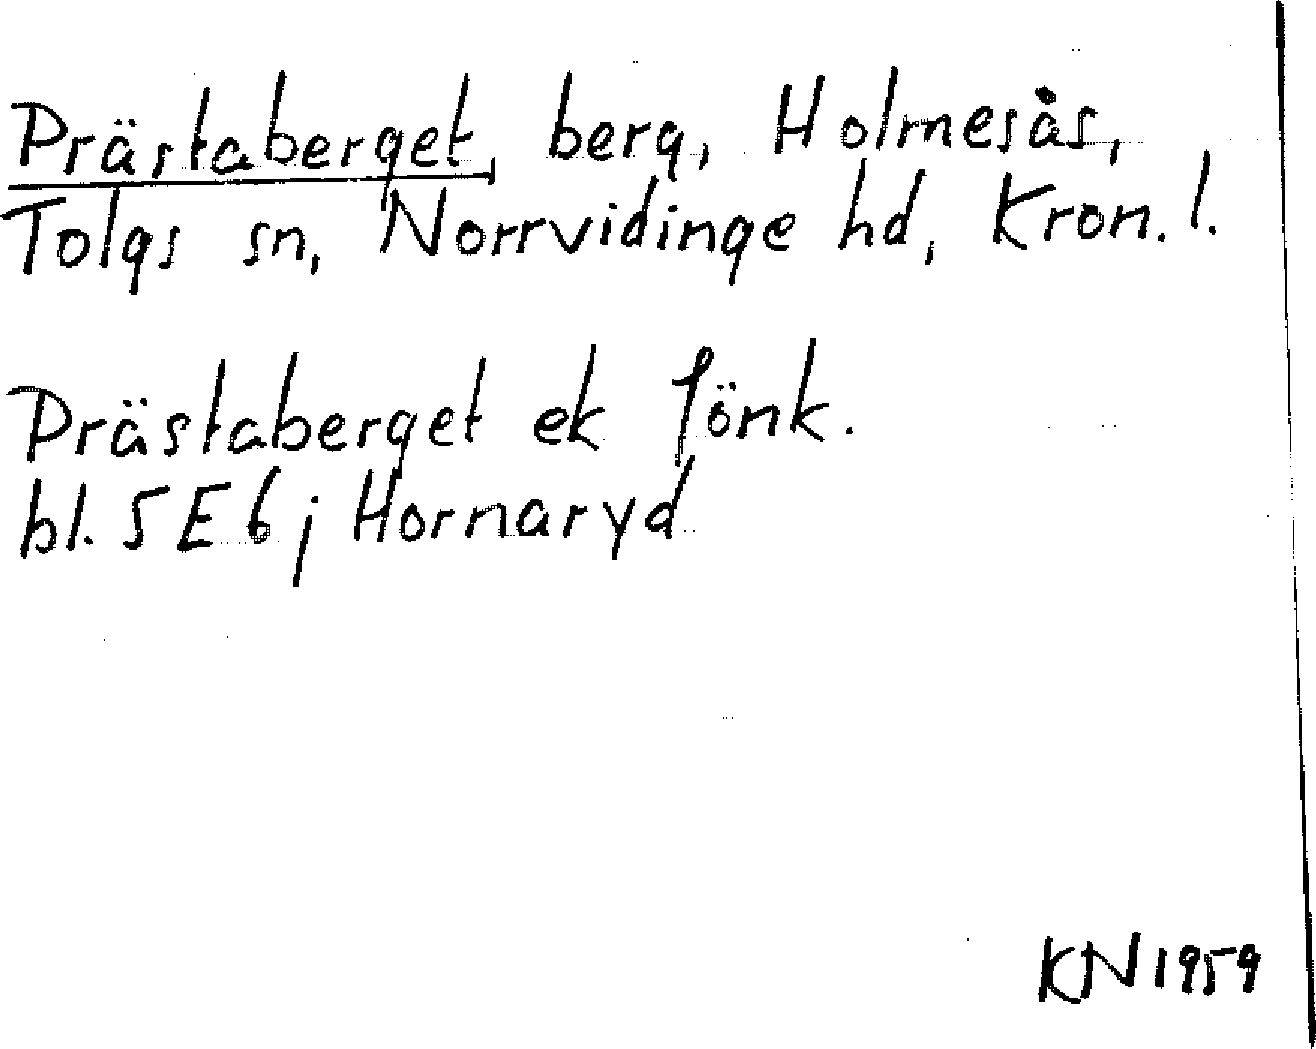 Prästaberget, berg, Holmesås,
Tolgs sn, Norrvidinge hd, Kron. l.
Prästaberget ek Jönk.
bl. 5 E 6 j Hornaryd
KN 1959